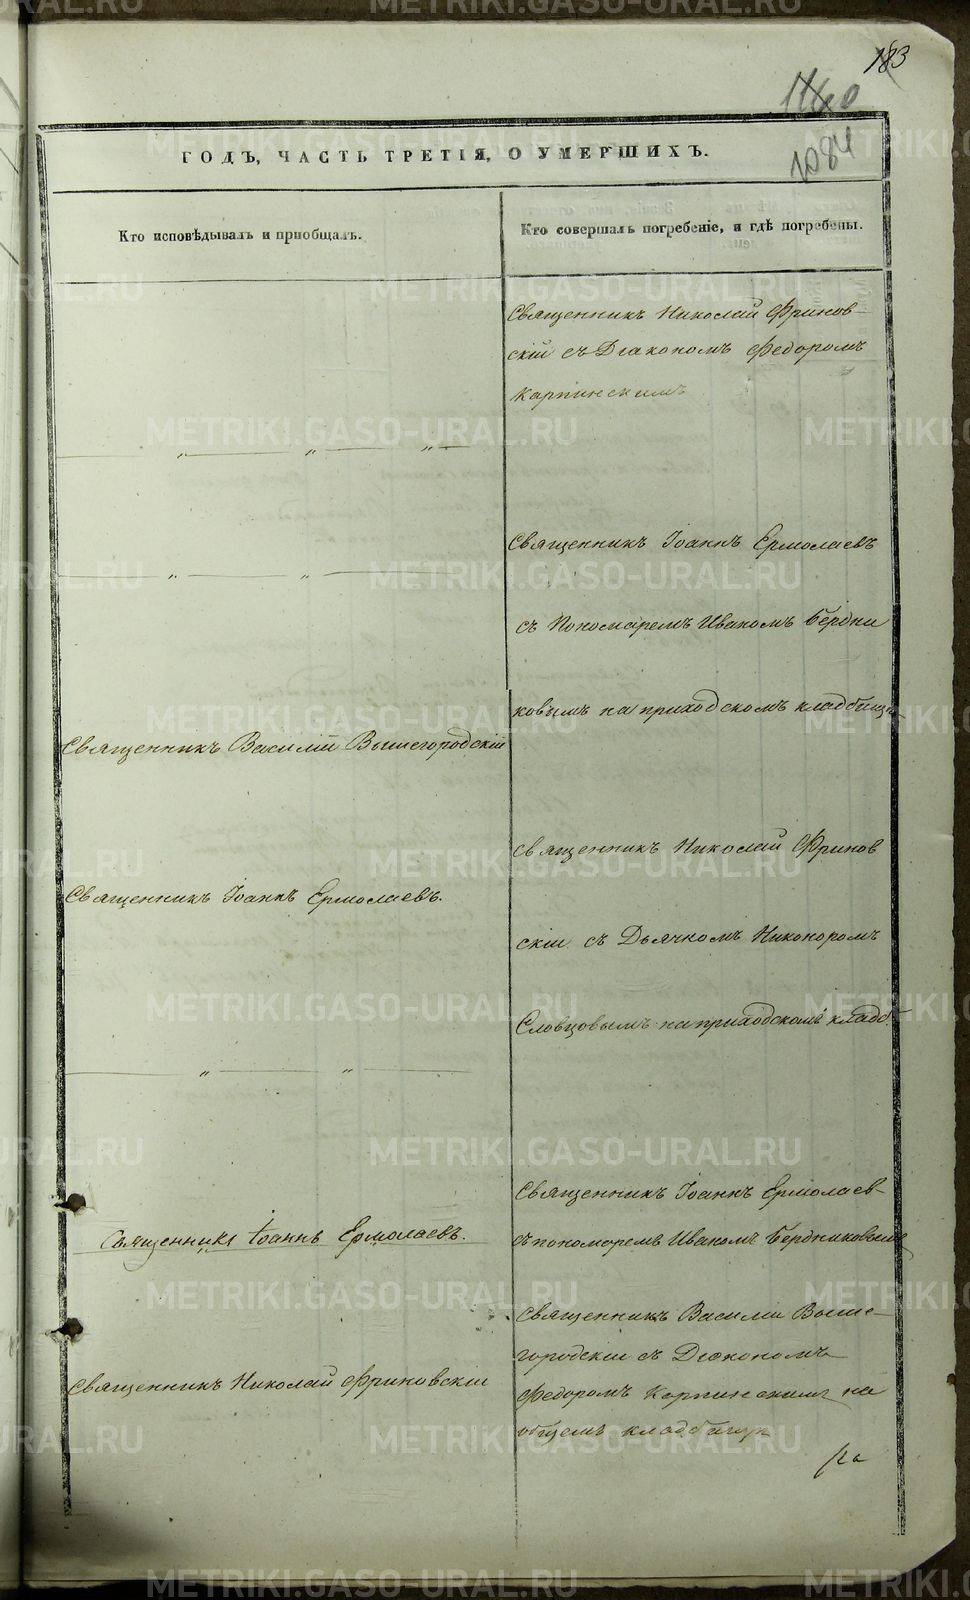 183
1084
ГОДЪ, ЧАСТЬ ТРЕТІЯ, О УМЕРШИХЪ.
Кто исповѣдывалъ и пріобщалъ.
Кто совершалъ погребеніе, и гдѣ погребены.
Священникъ Николай Фринов-
скій съ Діакономъ Федоромъ
Карпинскимъ
Священникъ Іоаннъ Ермолаевъ
съ Пономаремъ Иваномъ Бердни
ковымъ на приходскомъ кладбищѣ
Священникъ Василій Вышегородскій
Священникъ Николай Фринов
скій съ Дьячкомъ Никоноромъ
Словцовымъ на приходскомъ кладб.
Священникъ Іоаннъ Ермолаевъ.
Священникъ Іоаннъ Ермолаев-
съ пономоремъ Иваномъ Бердниковымъ
Священникъ Іоаннъ Ермолаевъ.
Священникъ Василій Выше-
городскій съ Діакономъ
Федоромъ Карпинскимъ на
общемъ кладбищѣ
Священникъ Николай Фриновскій
METRIKI.GASO-URAL.RU